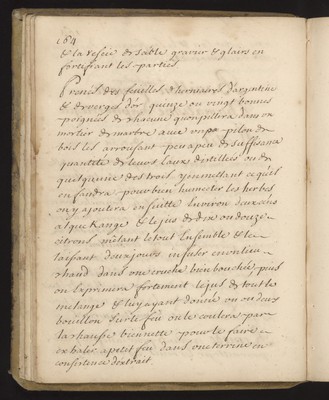 184
& la vessie de sable gravier & glaires en
fortifiant les parties
Prenez des feuilles d'herniaires d'argentine
& de verges d'or quinze ou vingt bonnes
poignées de chacune qu'on pillera dans un
mortier de marbre avec un pilon de
bois les arrousant peu a peu de suffisante
quantité de leurs eaux distillees ou de
quelqu'une des trois y en mettant ce qu'il
en faudra pour bien humecter les herbes
on y ajoutera en suitte environ deux
& le jus de dix ou douze
citrons mélant le tout ensemble & le
laissant deux jours infuser en un lieu
chaud dans une cruche bien bouchée puis
on exprimera fortement le jus de tout le
mélange & luy ayant donné un ou deux
bouillon sur le feu on le coulera par
la chausse pour le faire
exhaler a petit feu dans une terrine en
consistence d'extrait